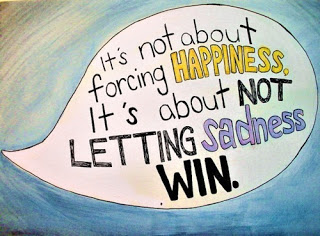 It's not about
forcing HAPPINESS.
It's about NOT
LETTING Sadness
WIN.